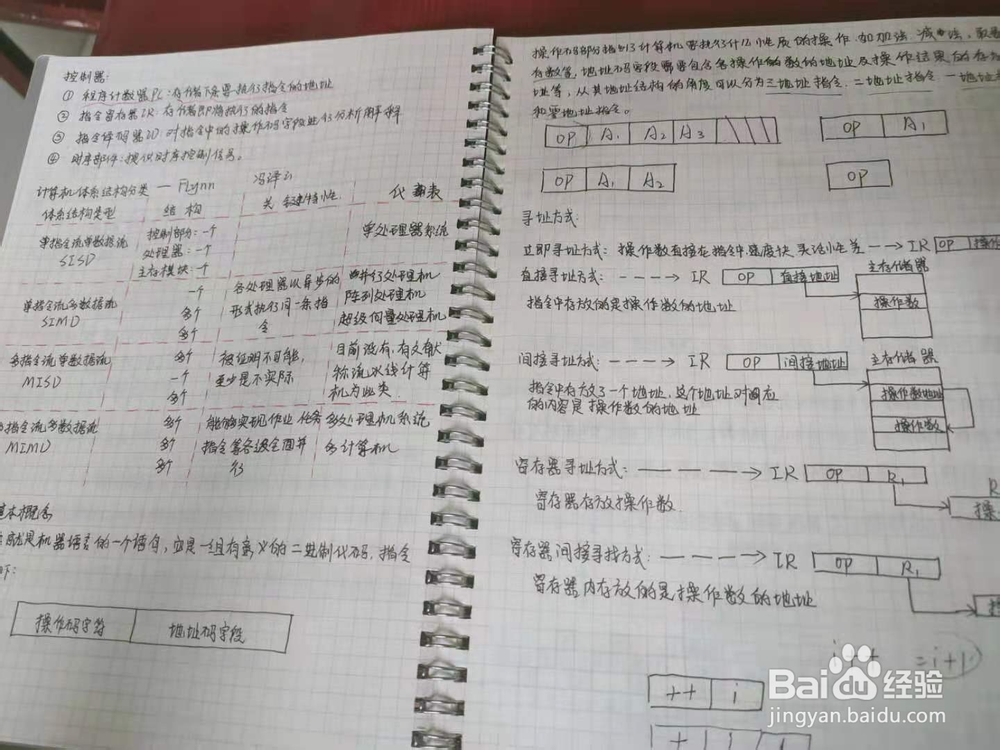 控制器:
① 程序计数器PC: 存储下条要执行指令的地址
② 指令寄存器IR: 存储即将执行的指令
③ 指令译码器ID: 对指令中的操作码字段进行分析解释
④ 时序部件: 提供时序控制信号。
计算机体系结构分类 — Flynn
体系结构类型 结构 关键特性 代表
单指令流单数据流 SISD
控制部分: 一个
处理器: 一个
主存模块: 一个
单处理器系统
单指令流多数据流 SIMD
一个
多个
多个
各处理器以异步的
形式执行同一条指
令
并行处理机
阵列处理机
超级向量处理机
多指令流单数据流 MISD
多个
一个
多个
被证明不可能,
至少是不实际
目前没有, 有文献
称流水线计算
机为此类
多指令流多数据流 MIMD
多个
多个
多个
能够实现作业 任务
指令等各级全面并
行
多处理机系统
多计算机
基本概念
就是机器语言的一个语句, 它是一组有意义的二进制代码, 指令
下:
操作码字 地址码字段
操作码部分指出了计算机要执行什么性质的操作, 如加法、减法、取
存数等, 地址码字段需要包含各操作数的地址及操作结果的存
址等, 从其地址结构的角度可以分为三地址指令、二地址指令、一地址
和零地址指令。
OP A₁ A₂ A₃
OP A₁
OP A₁ A₂
OP
寻址方式:
立即寻址方式: 操作数直接在指令中, 速度快 灵活性差 → IR OP 操作
直接寻址方式: → IR OP 直接地址 主存储器
操作数
指令中存放的是操作数的地址
间接寻址方式: → IR OP 间接地址 主存储器
操作数地址
操作数
指令中存放了一个地址, 这个地址对应
的内容是操作数的地址
寄存器寻址方式: → IR OP R₁
寄存器存放操作数
寄存器间接寻找方式: → IR OP R₁
寄存器内存放的是操作数的地址
i++ = i+1
++ i
+ i
Baidu经验
jingyan.baidu.com